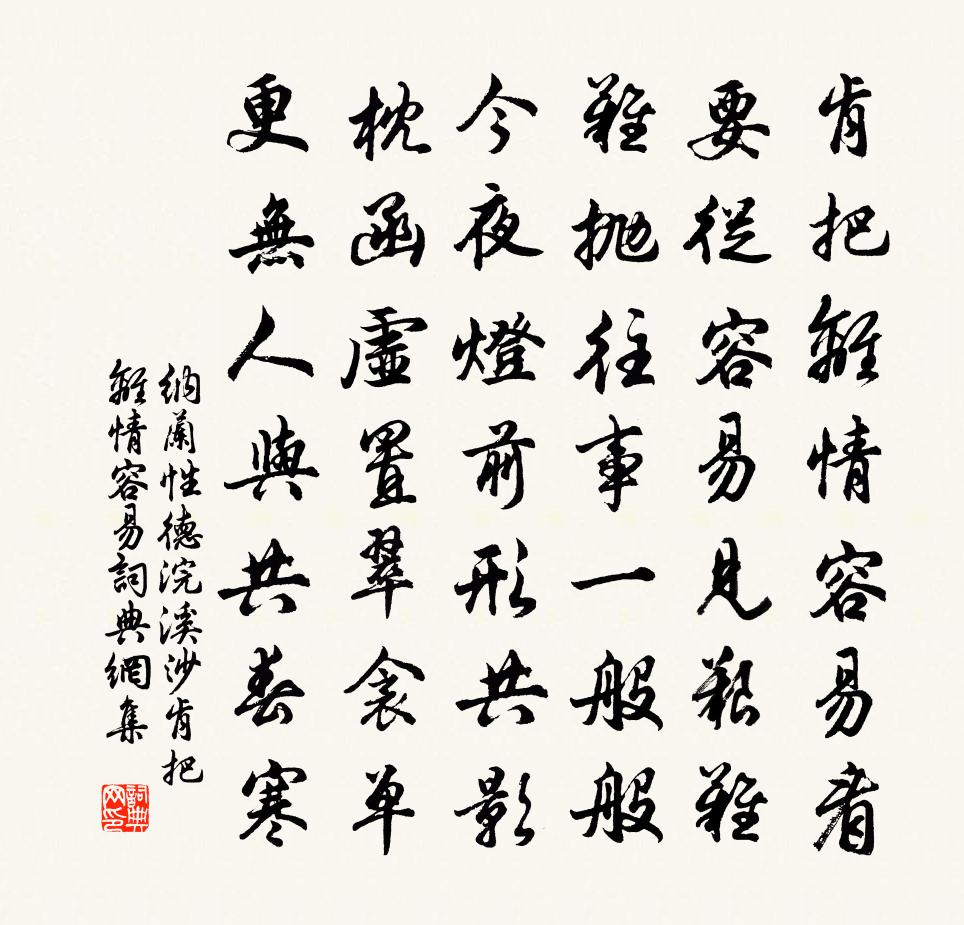 肯把離情容易看
要從容易見艱難
難抛往事一般般
今夜燈前形共影
枕函虛置翠衾單
更無人與共春寒
納蘭性德浣溪沙肯把
離情容易詞典網集
詞典網印